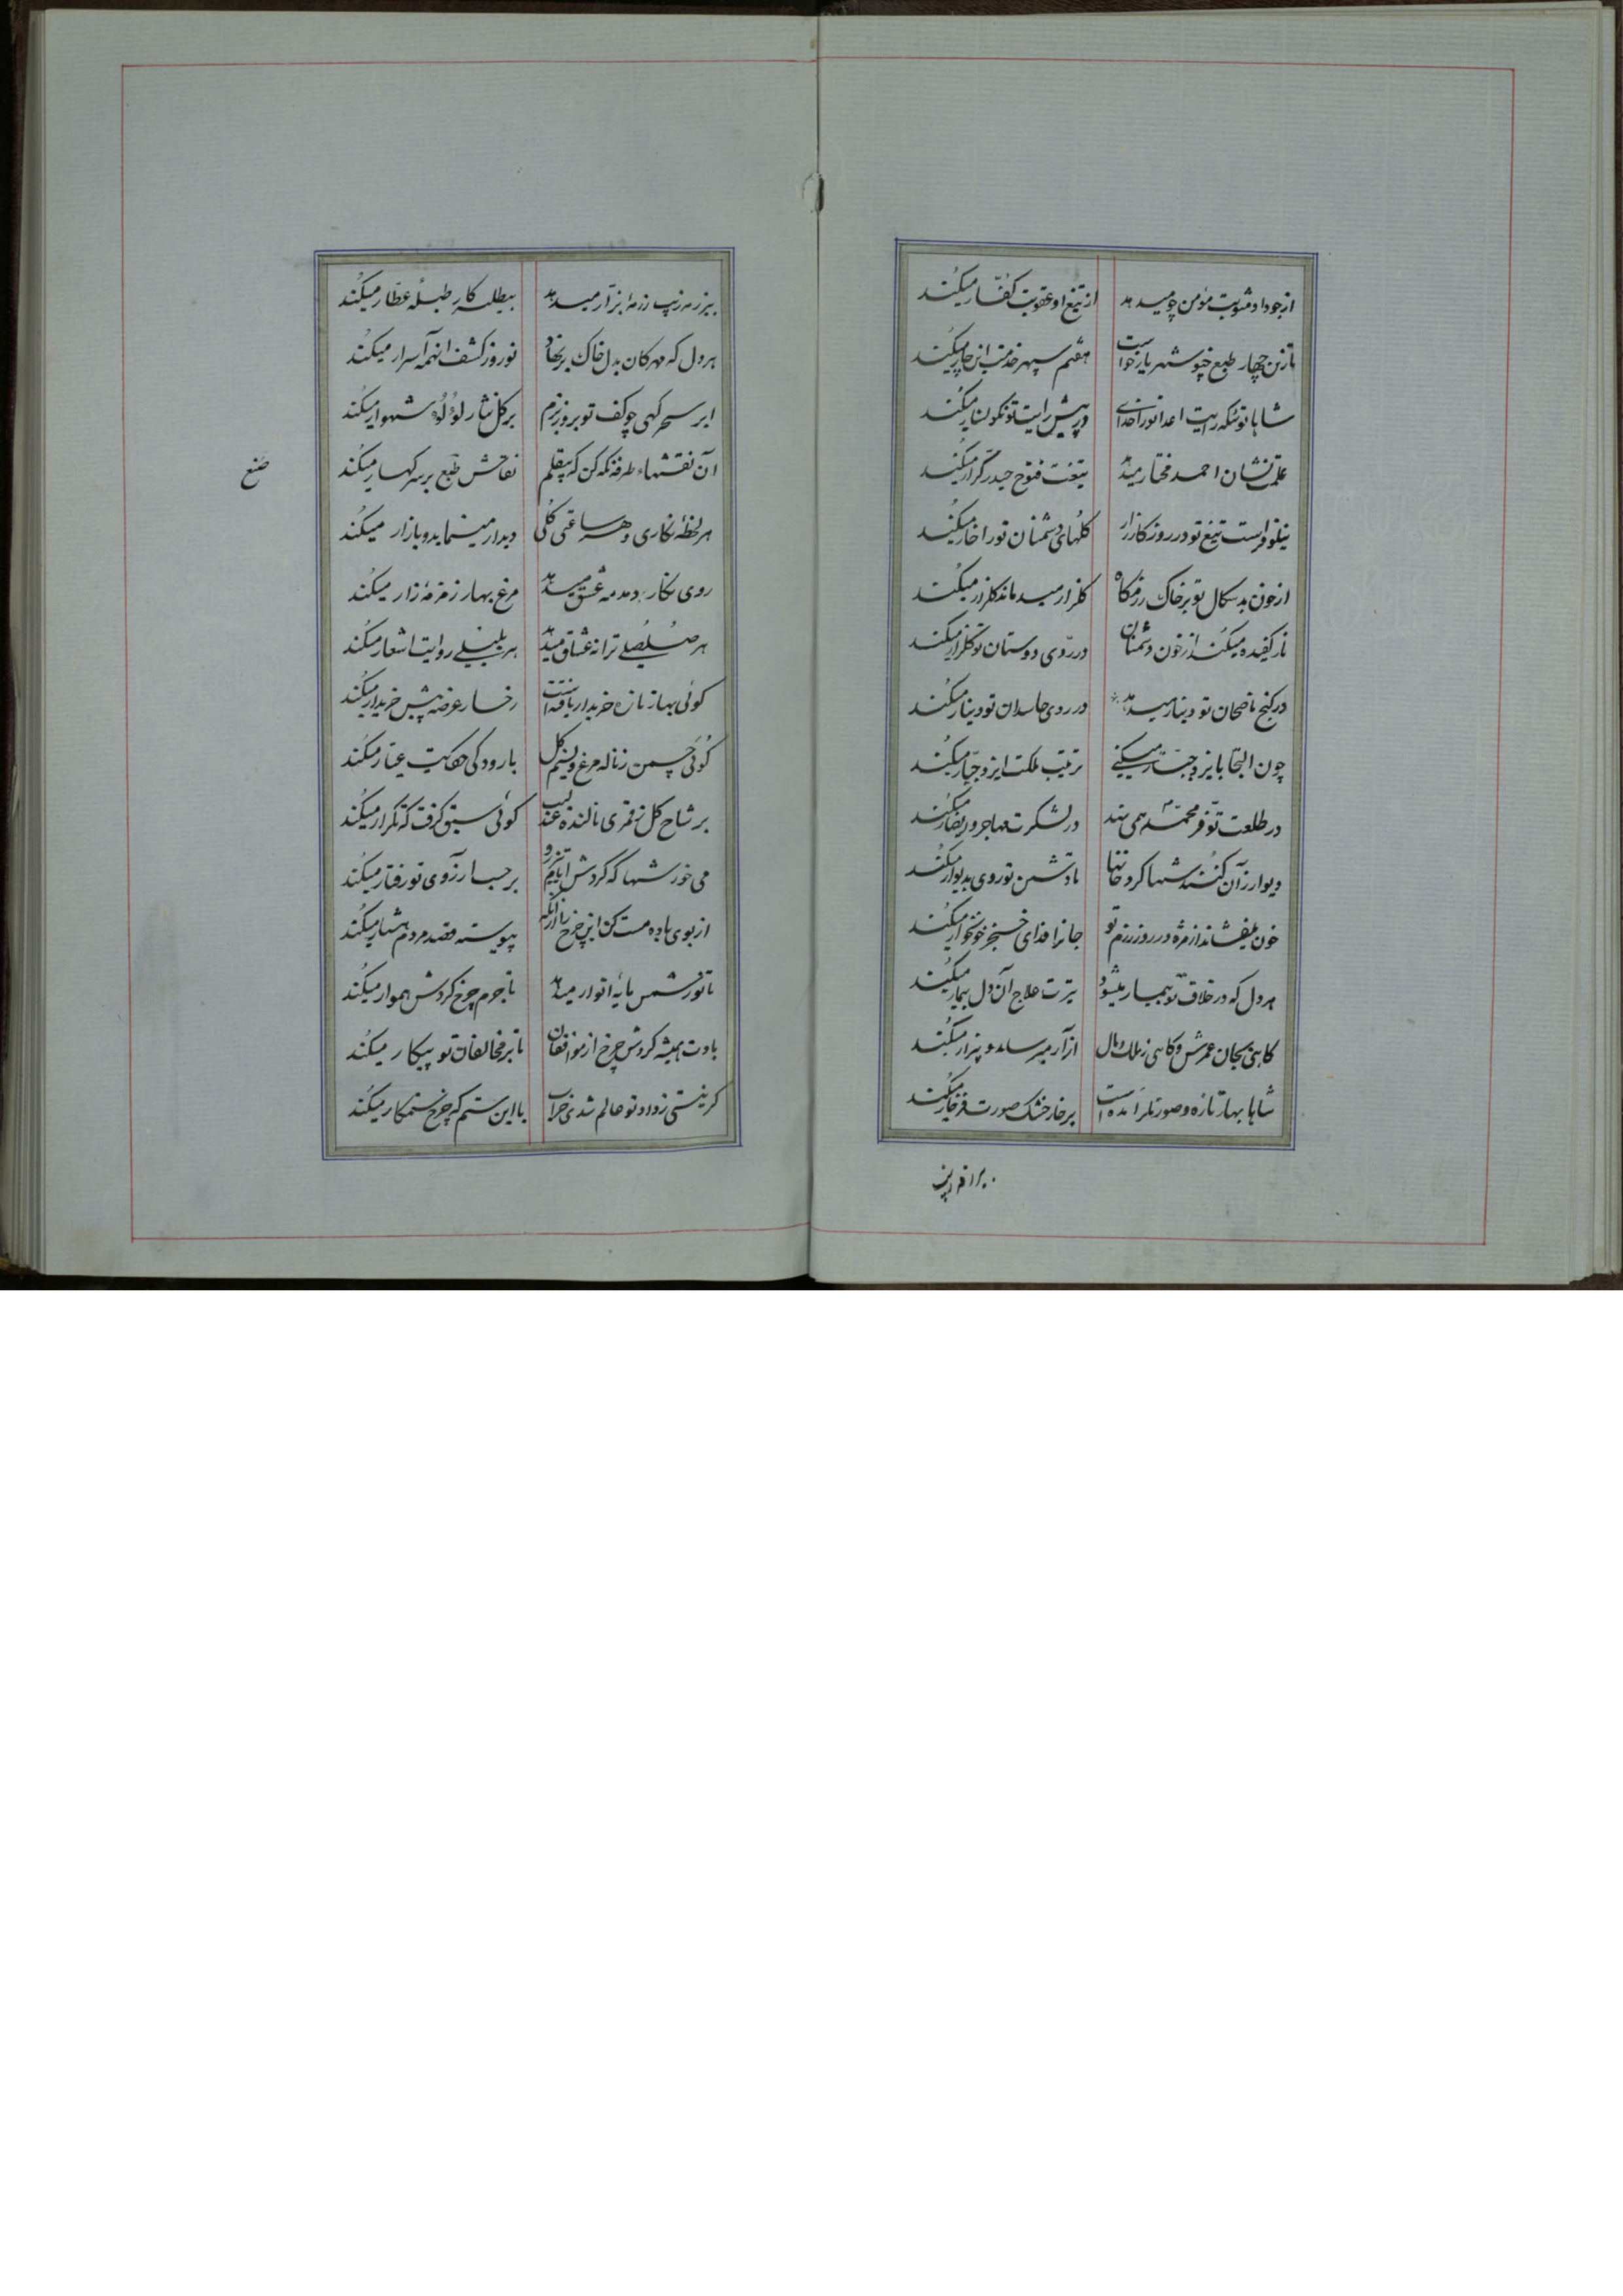 از جود او مثوبت مؤمن چو میدهد از تیغ او عقوبت کفّار میکند
تا زین چهار طبع چنو شهریار خواست هفتم سپهر خدمت این چار میکند
شاها توئی که رایت اعدا تو را خدای در پیش رایت تو نگونسار میکند
علمت نشان احمد مختار میدهد تیغت فتوح حیدر کرّار میکند
نیلوفرست تیغ تو در روز کارزار گلهای دشمنان تو را خار میکند
از خون بدسگال تو بر خاک رزمگاه گلزار میدماند گلزار میکند
نار کفیده میکند از خون دشمنان در روی دوستان تو گلنار میکند
در گنج ناصحان تو دینار مینهد در روی حاسدان تو دینار میکند
چون التجا بایزد جبّار میکنی ترتیب ملکت ایزد جبّار میکند
در طلعت تو فرّ محمّد همی نهد در لشکرت مهاجر و انصار میکند
دیوار زآن کنند شها گرد خانها تا دشمن تو روی بدیوار میکند
خون میفشاند از مژه در روز رزم تو جانرا فدای خنجر خونخوار میکند
هر دل که در خلاف تو بیمار میشود تیرت علاج آن دل بیمار میکند
گاهی بجان عمرش و گاهی ز ملک و مال آزار میرساند و بیزار میکند
شاها بهار تازه و صورتگر آمده است بر خار خشک صورت فرخار میکند
بزاز
بیزرمه زیب رزمهٔ بزّار میدهد بیطبله کار طبلهٔ عطّار میکند
هر دل که مهرکان بدل خاک بر نهاد نوروز کشف آنهمه اسرار میکند
ابر سحرگهی چو کف تو بروز بزم بر گل نثار لؤلؤ شهوار میکند
آن نقشهاء طرفه نگه کن که بیقلم نقاش طبع بر سر کهسار میکند
صنع
هر لحظهٔ نگاری و هر ساعتی گلی دیدار مینماید و بازار میکند
روی نگار دمدمه عشق میدهد مرغ بهار زمزمهٔ زار میکند
هر صُلصُلی ترانه عشاق میزند هر بلبلی روایت اشعار میکند
گوئی بهار تازه خریدار یافته است رخسار عرضه پیش خریدار میکند
گوئی چمن ز ناله مرغ و نسیم گل با رودکی حکایت عیّار میکند
بر شاخ گل ز قمری نالنده عندلیب گوئی سبق گرفت که تکرار میکند
می خور شها که گردش ایام تیزرو بر حسب آرزوی تو رفتار میکند
از بوی باده مست کن این چرخ را از آنکه پیوسته قصد مردم هشیار میکند
تا نور شمس مایهٔ انوار میدهد تا جرم چرخ گردش هموار میکند
بادت همیشه گردش چرخ از موافقان تا بر مخالفان تو پیکار میکند
گر نیستی ز داد تو عالم شدی خراب با این ستم که چرخ ستمکار میکند